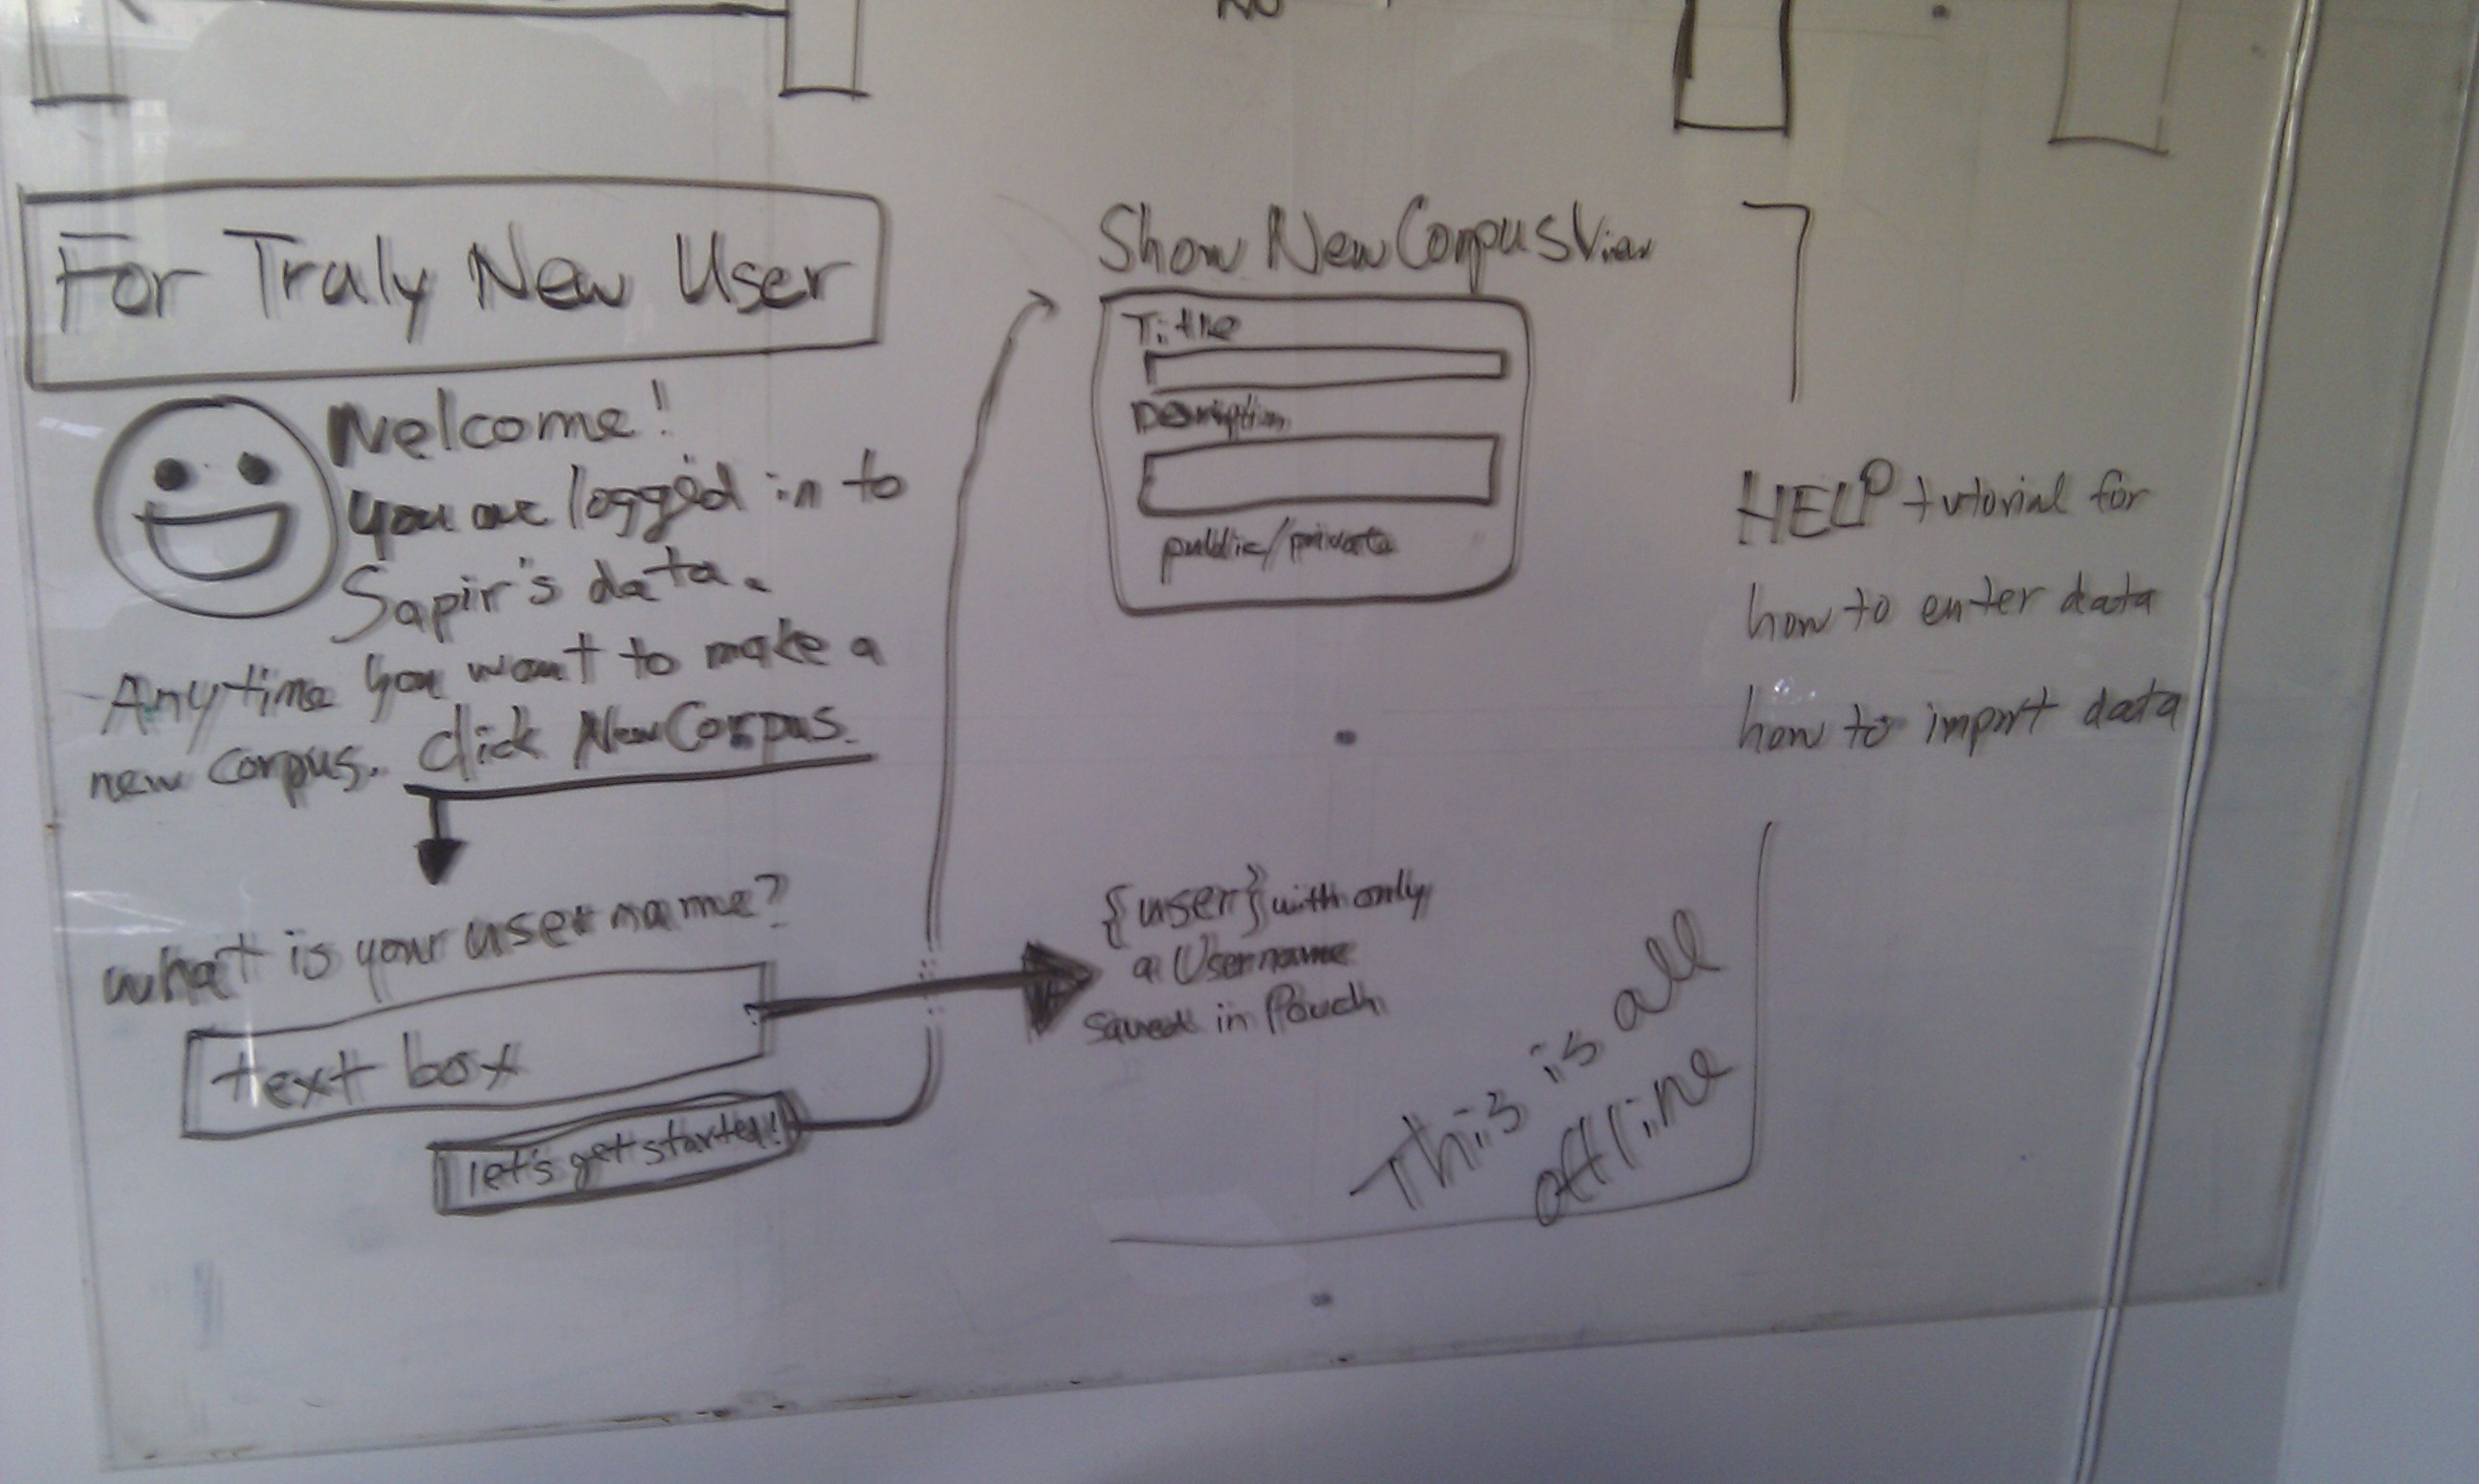 NO
For Truly New User
Welcome!
you are logged in to
Sapir's data.
Anytime you want to make a
new corpus. click New Corpus.
what is your username?
text box
let's get started!
Show New Corpus View
Title
Description
public/private
{user} with only
a Username
saved in Pouch
This is all
offline
HELP tutorial for
how to enter data
how to import data